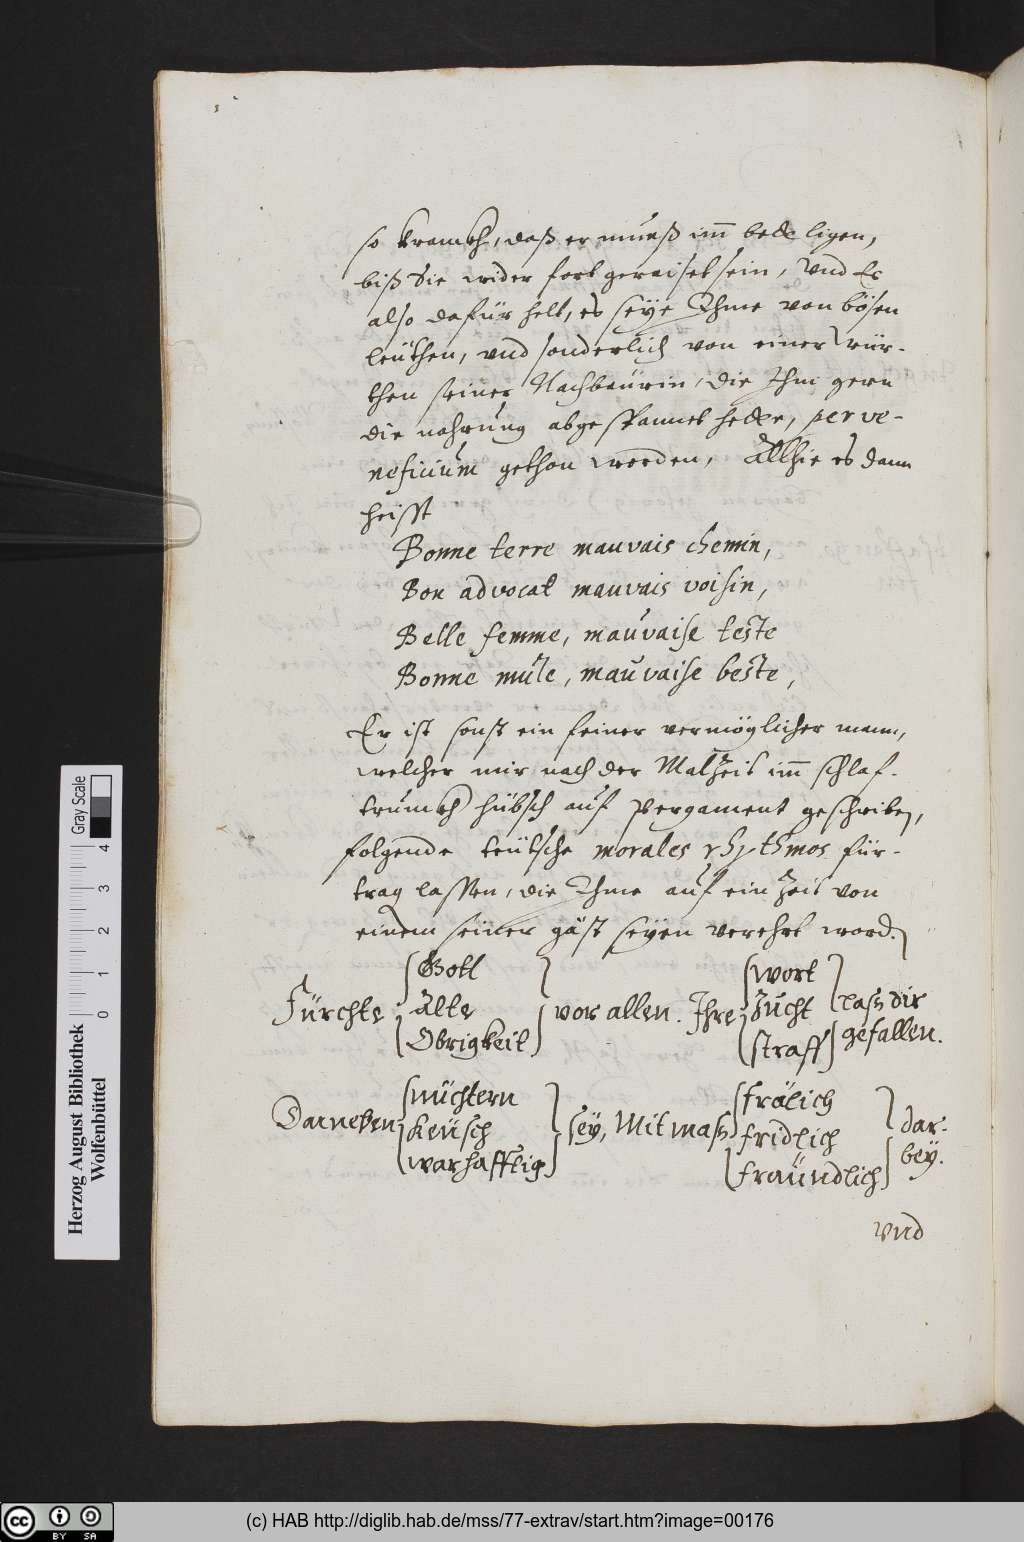 so kranckh, daß er mueß im̅ bede ligen,
biß Sie wider fort geraiset sein, Vnd Er
also dafür helt, es seye Ihme von bösen
leüthen, vnd sonderlich von einer wür-
then seiner Nachbaürin, die Ihm gern
die nahrung abgespannet hette, per ve-
neficium gethon worden, Allhie es dann
heisst
Bonne terre mauvais chemin,
Bon advocat mauvais voisin,
Belle femme, mauvaise teste
Bonne mule, mauvaise beste,
Er ist sonst ein feiner vermöglicher mann,
welcher mir nach der Malzeit im̅ schlaf-
trunckh hübsch auf Pergament geschriben,
folgende teütsche morales rhythmos für-
trag lassen, die Ihme auf ein Zeit von
einem seiner gäst seyen verehrt word.
Fürchte { Gott / Alte / Obrigkeit } vor allen. Ihre { wort / Zucht / straff } lass dir gefallen.
Darneben { nüchtern / keüsch / warhafftig } sey, Mit mass { frölich / fridlich / freündlich } dar-bey.
vnd
Gray Scale
0 1 2 3 4
Herzog August Bibliothek
Wolfenbüttel
cc BY SA
(c) HAB http://diglib.hab.de/mss/77-extrav/start.htm?image=00176